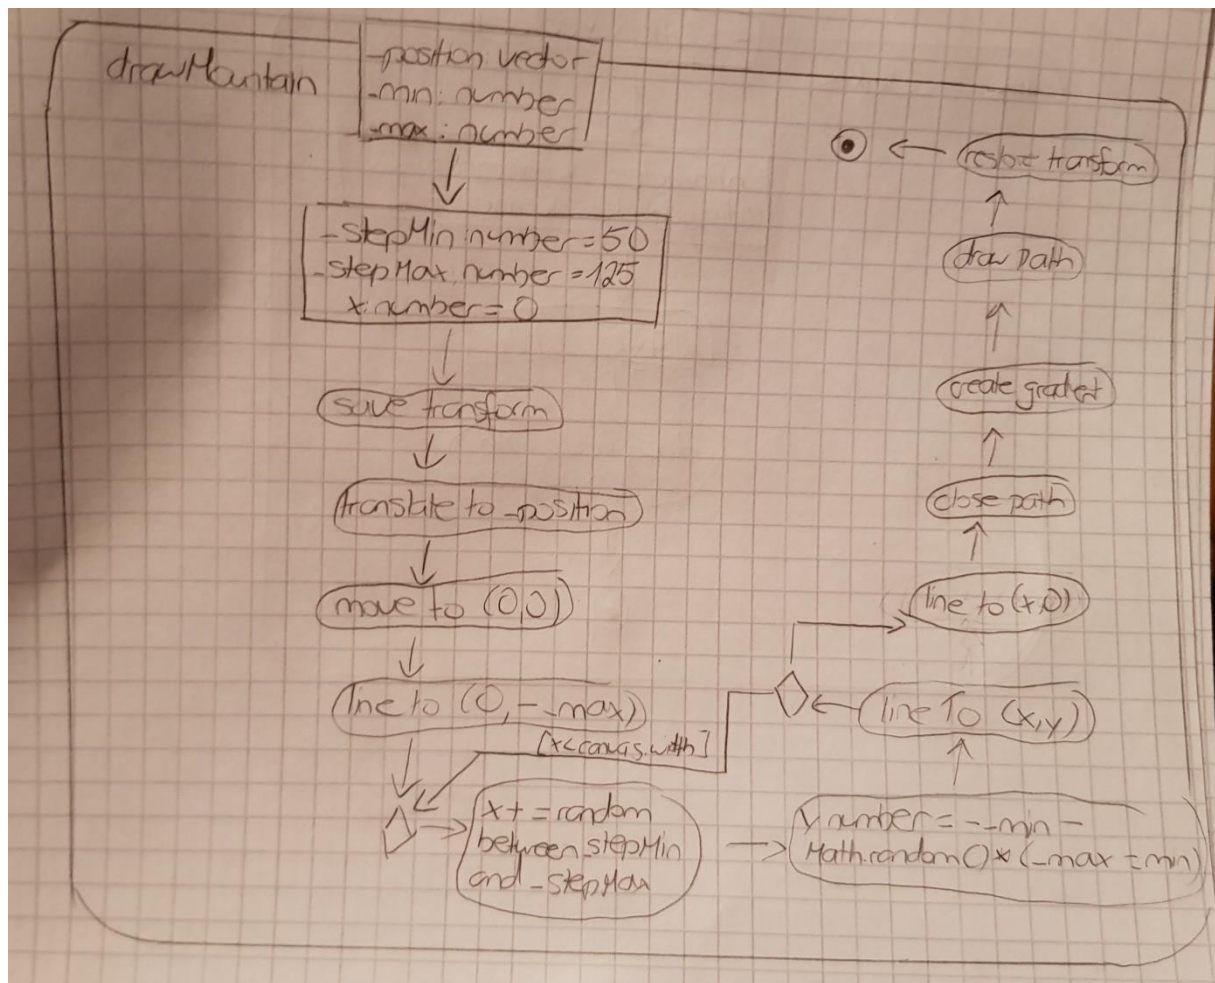 drawMountain
_position: vector
_min: number
_max: number
_stepMin: number = 50
_stepMax: number = 125
x: number = 0
save transform
translate to _position
move to (0,0)
line to (0, -_max)
[x<canvas.width]
x += random
between _stepMin
and _stepMax
y number = - _min -
Math.random() * (_max - _min)
line To (x,y)
line to (x,0)
close path
create gradient
draw path
restore transform